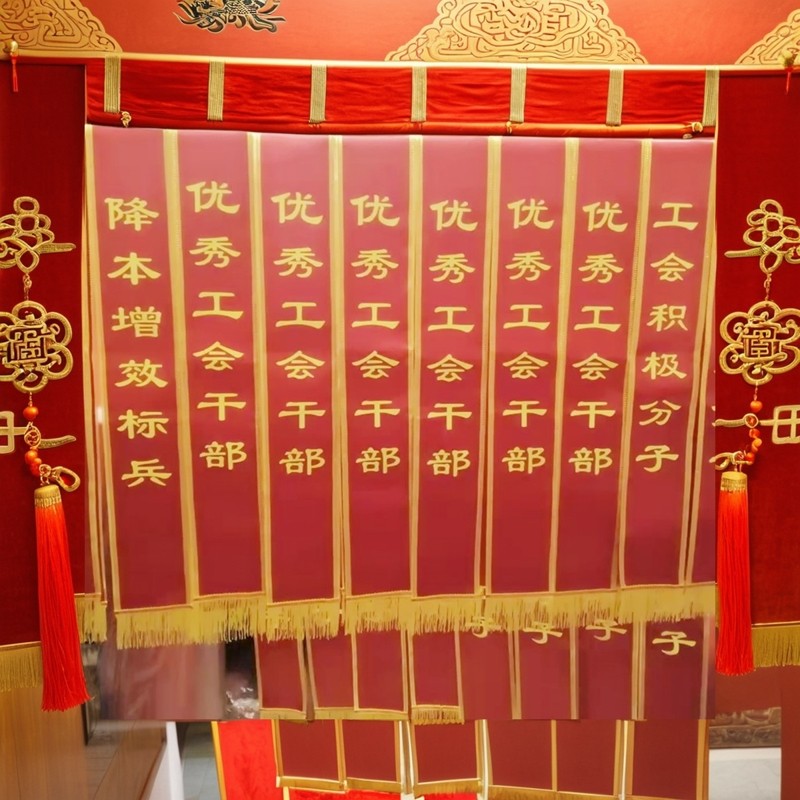 降本增效标兵
优秀工会干部
优秀工会干部
优秀工会干部
优秀工会干部
优秀工会干部
优秀工会干部
工会积极分子
子
子
子
子